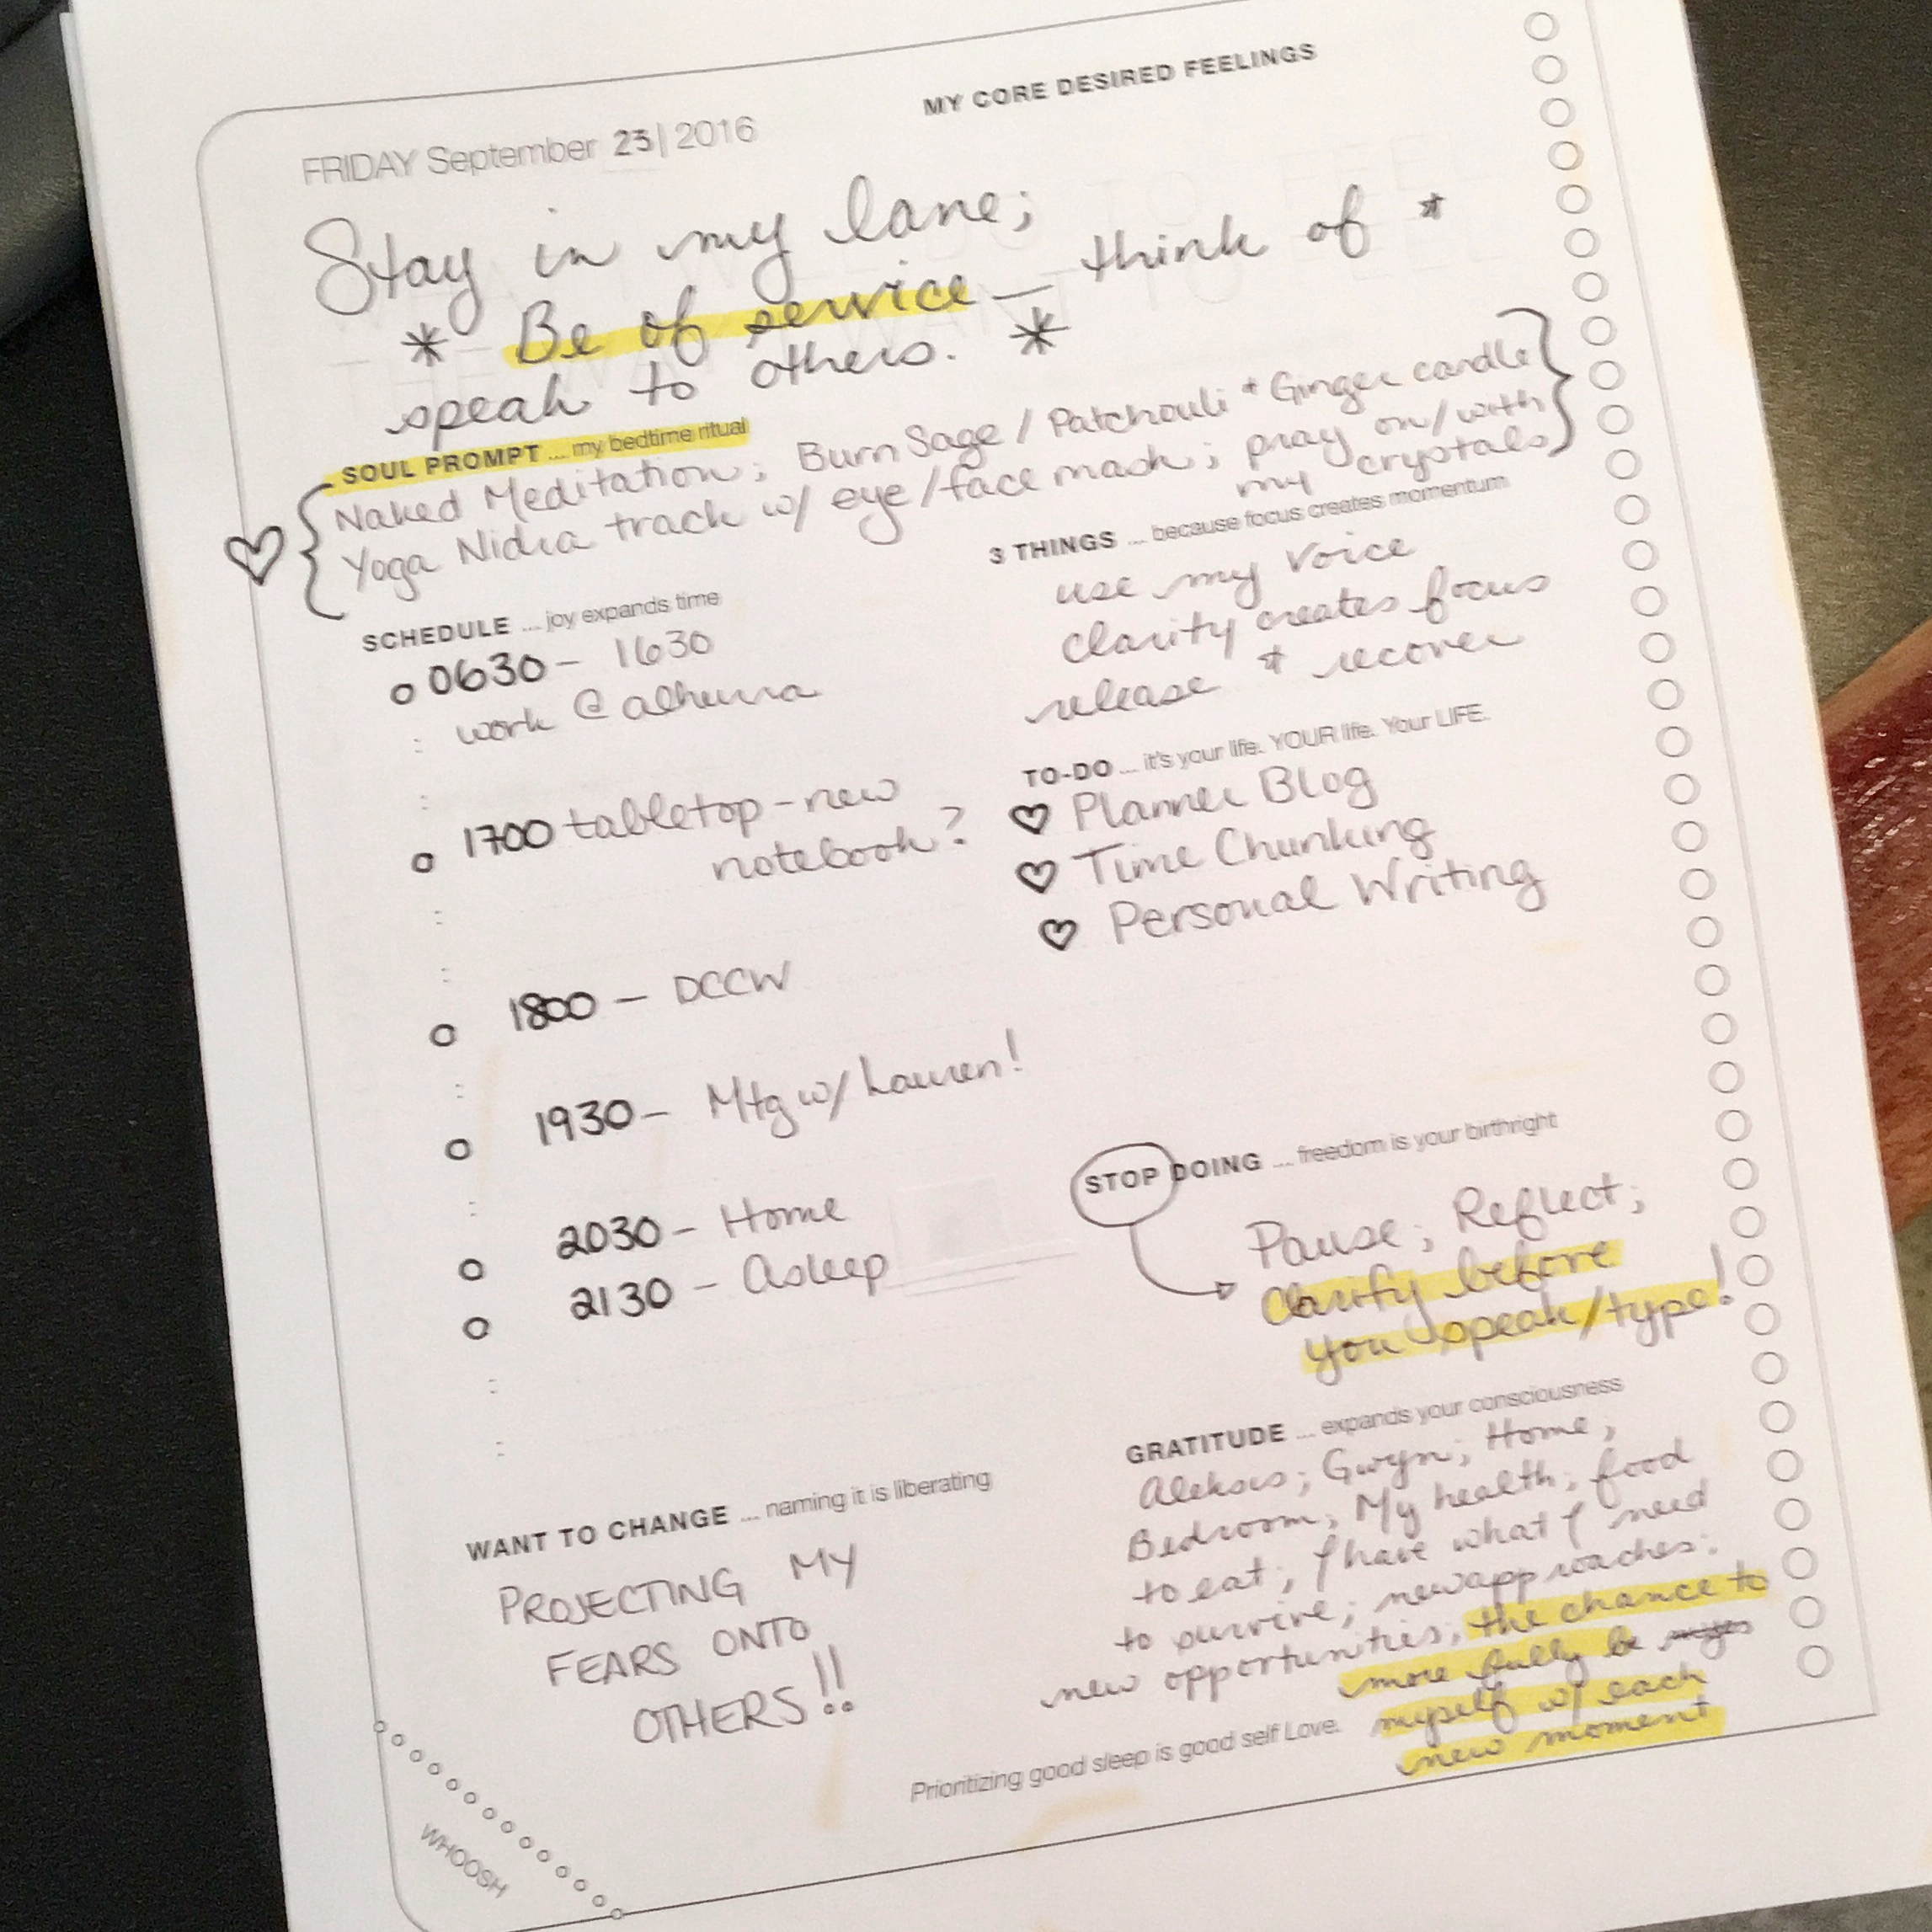 MY CORE DESIRED FEELINGS
FRIDAY September 23 | 2016
Stay in my lane;
* Be of service — think of *
speak to others. *
SOUL PROMPT ... my bedtime ritual
Naked Meditation; Burn Sage / Patchouli + Ginger candle
Yoga Nidra track w/ eye/face mask; pray on/with
my crystals
SCHEDULE ... joy expands time
0630 - 1630
work @
1700 tabletop - new
notebook?
1800 - DCCW
1930 - Mtg w/ Lauren!
2030 - Home
2130 - Asleep
3 THINGS ... because focus creates momentum
use my voice
clarity creates focus
release + recover
TO-DO ... it's your life. YOUR life. Your LIFE.
♡ Planner Blog
♡ Time Chunking
♡ Personal Writing
STOP DOING ... freedom is your birthright
Pause; Reflect;
Clarify before
you speak/type!
WANT TO CHANGE ... naming it is liberating
PROJECTING MY
FEARS ONTO
OTHERS!!
GRATITUDE ... expands your consciousness
Aleksis; Gwyn; Home;
Bedroom; My health; food
to eat; I have what I need
to survive; new approaches;
new opportunities; the chance to
more fully be
myself w/ each
new moment
Prioritizing good sleep is good self Love.
WHOOSH